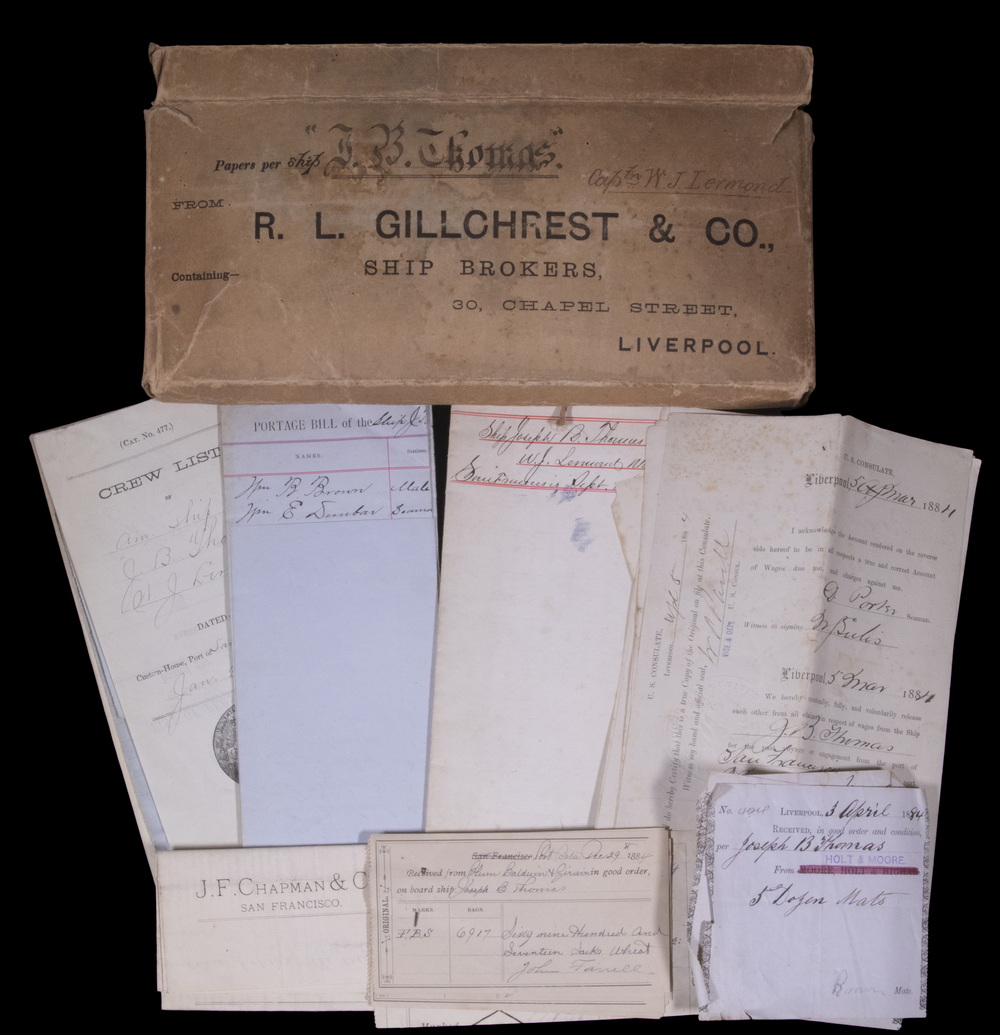 Papers per ship "J. B. Thomas".
Captn W J Lermond
FROM
R. L. GILLCHREST & CO.,
SHIP BROKERS,
Containing—
30, CHAPEL STREET,
LIVERPOOL.
(CAT. No. 477.)
CREW LIST
OF
Am Ship
J B Tho
W J Ler
DATED
Custom-House, Port of San
Jan.
PORTAGE BILL of the Ship J.
NAMES.
Wm B Brown Mate
Wm E Dunbar Seama
Ship Joseph B. Thomas
W. J. Lermond
San Francisco Sept.
U. S. CONSULATE,
Liverpool, 5th Mar 1884
I acknowledge the Account rendered on the reverse
side hereof to be in all respects a true and correct Account
of Wages due me, and charges against me.
Porter Seaman.
Witness to signing
Liverpool, 5 Mar 1884
We hereby mutually, fully, and voluntarily release
each other from all claims in respect of wages from the Ship
J. B. Thomas
engagement from the port of
San Francisco
U. S. CONSULATE,
LIVERPOOL, 188
do hereby Certify that this is a true Copy of the Original on file at this Consulate.
Witness my hand and official seal,
U. S. CONSUL
J. F. CHAPMAN & C
SAN FRANCISCO.
ORIGINAL.
San Francisco Port Costa Dec 29th 1884
Received from in good order,
on board ship Joseph B Thomas
MARKS. BAGS.
F.B.S 6917 Sixty nine Hundred And
Seventeen Sacks Wheat
John Farrell
No. LIVERPOOL, 3 April 1884
RECEIVED, in good order and condition,
per Joseph B Thomas
HOLT & MOORE
From MOORE, HOLT &
5 Dozen Mats
Brown Mate.